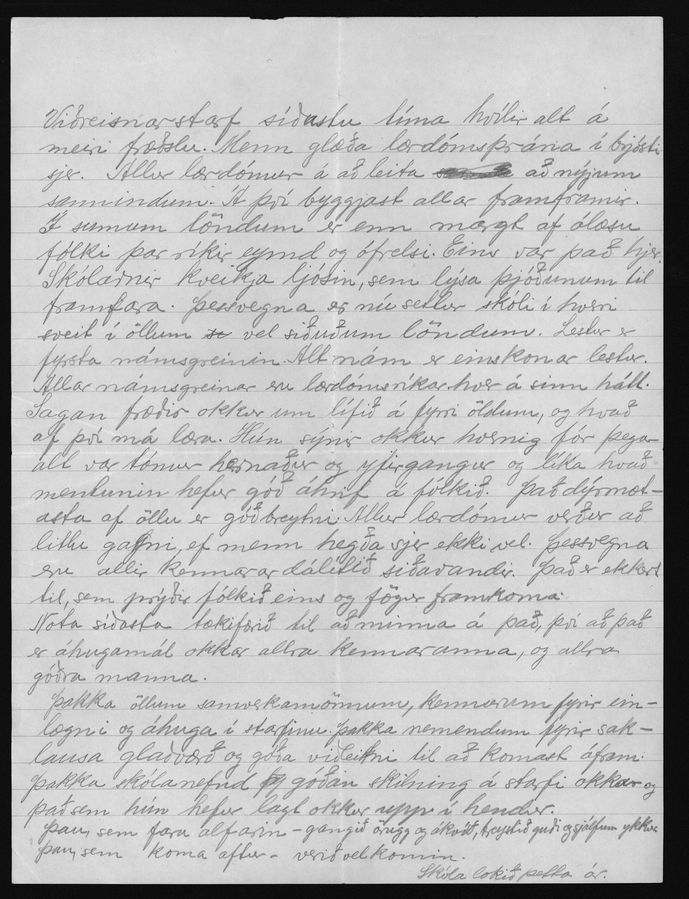 Viðreisnarstarf síðustu tíma hvílir alt á
meiri fræðslu. Menn glæða lærdómsþrána í brjósti
sjer. Allur lærdómur á að leita að nýjum
sannindum. Á því byggjast allar framfarir.
Í sumum löndum er enn margt af ólæsu
fólki þar ríkir eymd og ófrelsi. Eins var það hjer.
Skólarnir kveikja ljósin, sem lýsa þjóðunum til
framfara. Þessvegna er nú settur skóli í hverri
sveit í öllum vel siðuðum löndum. Lestur er
fyrsta námsgreinin. Alt nám er einskonar lestur.
Allar námsgreinar eru lærdómsríkar hver á sinn hátt.
Sagan fræðir okkur um lífið á fyrri öldum, og hvað
af því má læra. Hún sýnir okkur hvernig fór þegar
alt var tómur hernaður og yfirgangur og líka hvað
mentunin hefur góð áhrif á fólkið. Það dýrmæt-
asta af öllu er góð breytni. Allur lærdómur verður að
litlu gagni, ef menn hegða sjer ekki vel. Þessvegna
eru allir kennarar dálítið siðavandir. Það er ekkert
til, sem prýðir fólkið eins og fögur framkoma.
Nota síðasta tækifærið til að minna á það, því að það
er áhugamál okkar allra kennaranna, og allra
góðra manna.
Þakka öllum samverkamönnum, kennurum fyrir ein-
lægni og áhuga í starfinu. Þakka nemendum fyrir sak-
lausa glaðværð og góða viðleitni til að komast áfram.
Þakka skólanefnd góðan skilning á starfi okkar og
það sem hún hefur lagt okkur upp í hendur.
Þau, sem fara alfarin - gangið örugg og ákveðið, treystið guði og sjálfum ykkur
Þau, sem koma aftur - verið velkomin.
Skóla lokið þetta ár.